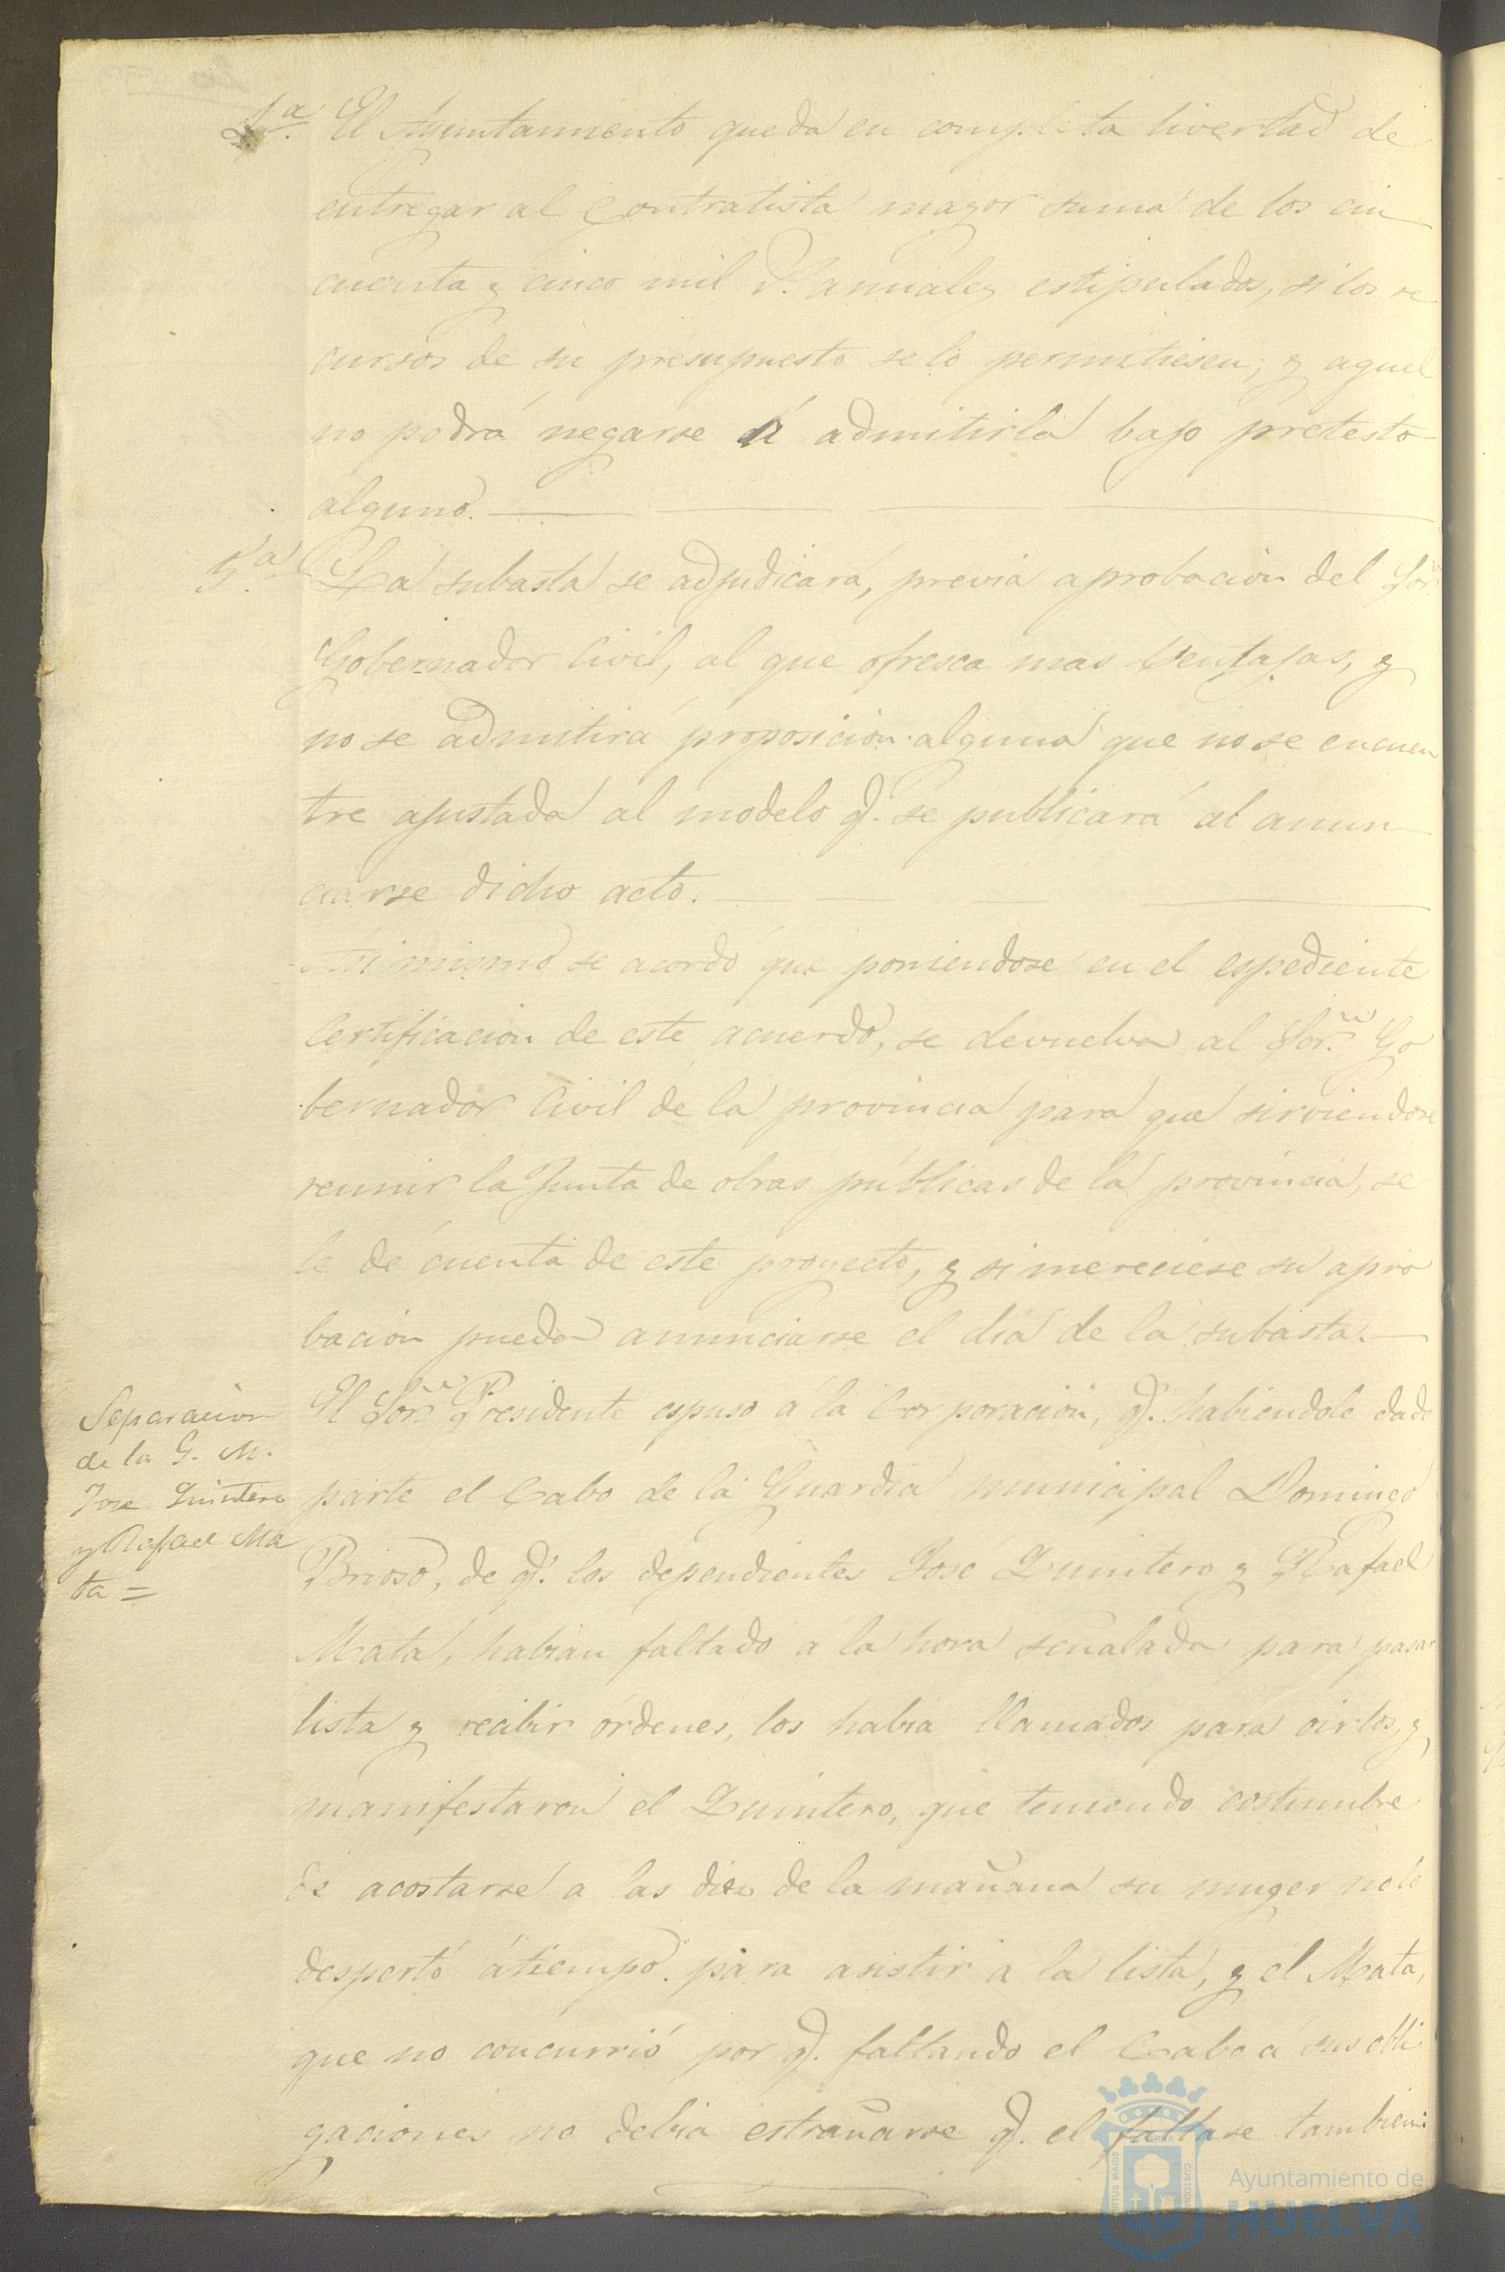 4.ª El Ayuntamiento queda en completa livertad de
entregar al Contratista mayor suma de los cin
cuenta y cinco mil r.ˢ anuales estipulados, si los re
cursos de su presupuesto se lo permitiesen; y aquel
no podrá negarse á admitirla bajo pretesto
alguno.
5.ª La subasta se adjudicará, previa aprobacion del Sor.
Gobernador Civil, al que ofresca mas ventajas, y
no se admitirá proposicion alguna que no se encuen
tre ajustada al modelo q. se publicará al anun
ciarse dicho acto.
Asi mismo se acordó que poniendose en el espediente
certificacion de este acuerdo, se devuelva al Sor. Go
bernador Civil de la provincia para que sirviendose
reunir la Junta de obras públicas de la provincia, se
le dé cuenta de este proyecto, y si mereciese su apro
bacion pueda anunciarse el dia de la subasta.
Separacion
de la G. M.
Jose Quintero
y Rafael Ma
ta =
El Sor. Presidente espuso á la Corporacion, q. habiendole dado
parte el Cabo de la Guardia municipal Domingo
Brioso, de q. los dependientes José Quintero y Rafael
Mata, habian faltado a la hora señalada para pasar
lista y recibir órdenes, los habia llamados para oirlos, y
manifestaron el Quintero, que teniendo costumbre
de acostarse a las diez de la mañana su muger no lo
despertó átiempo para asistir a la lista, y el Mata,
que no concurrió por q. faltando el Cabo a sus obli
gaciones no debia estrañarse q. el faltase tambien:
Ayuntamiento de
HUELVA